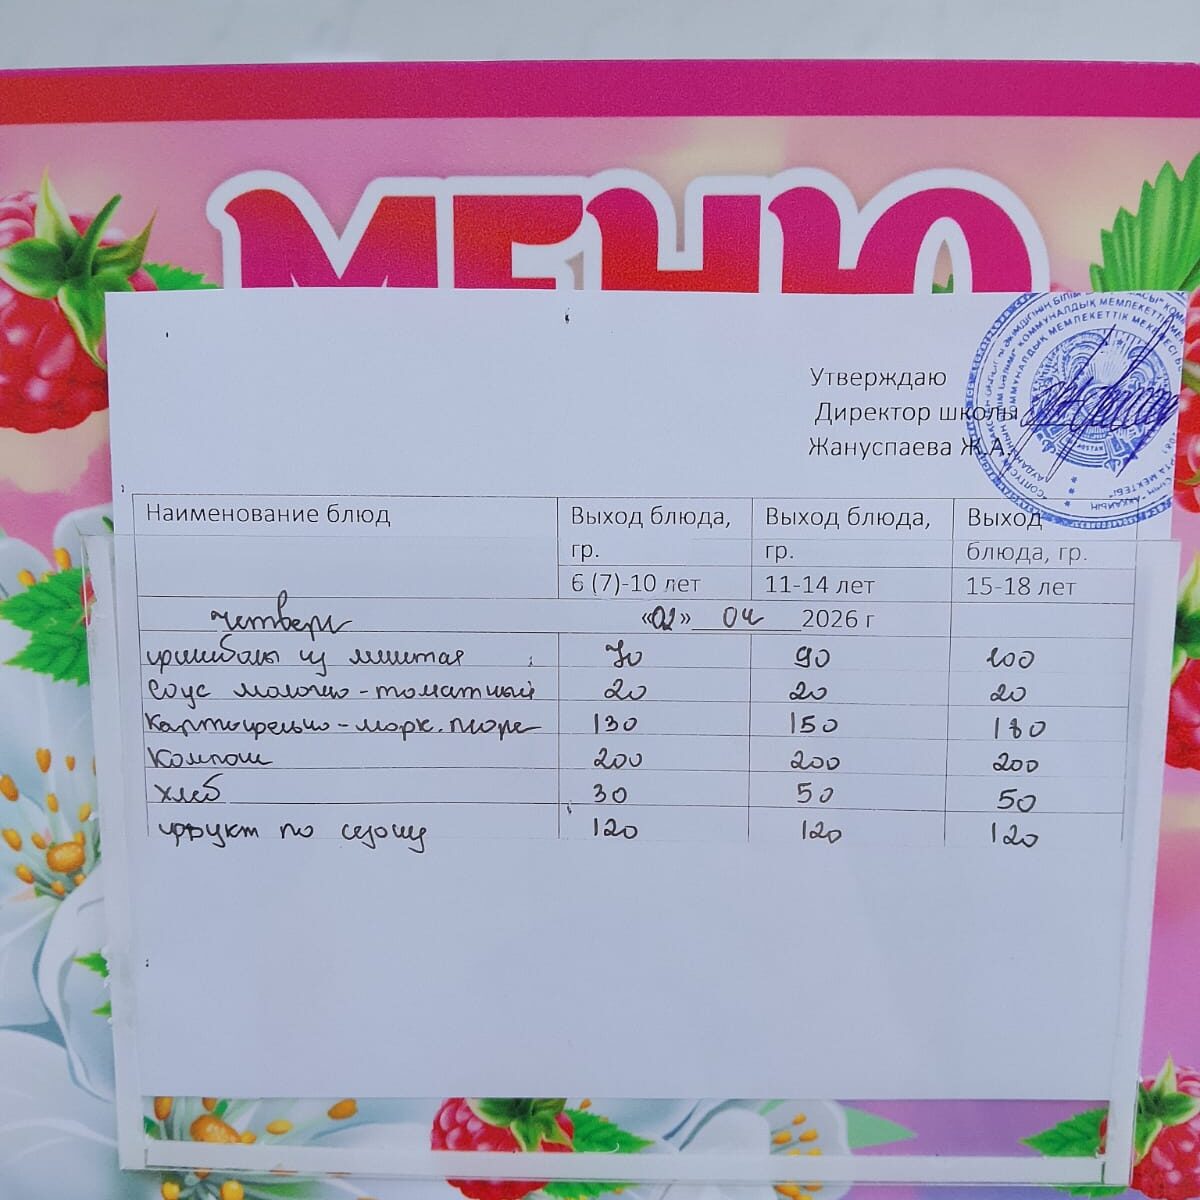 МЕНЮ
Утверждаю
Директор школы
Жануспаева Ж.А.
Наименование блюд Выход блюда, гр. Выход блюда, гр. Выход блюда, гр.
6 (7)-10 лет 11-14 лет 15-18 лет
четверг «02» 04 2026 г
фришбалы из минтая 70 90 100
Соус молочно-томатный 20 20 20
Картофельно-морк. пюре 130 150 180
Компот 200 200 200
хлеб 30 50 50
фрукт по сезону 120 120 120